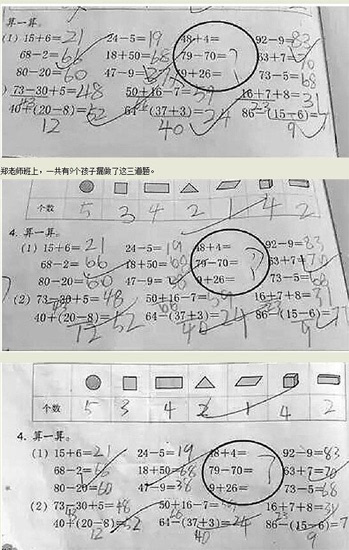 算一算。
(1) 15+6=21 24-5=19 48+4= 92-9=83
68-2=66 18+50=68 79-70= ? 63+7=70
80-20=60 47-9= 9+26= 73-5=68
) 73-30+5=48 50+16-7=59 16+7+8=31
43 23
40+(20-8)=52 64-(37+3)=24 86-(15-6)=7
12 40 9
郑老师班上，一共有9个孩子漏做了这三道题。
个数 5 3 4 2 1 4 2
4. 算一算。
(1) 15+6=21 24-5=19 48+4= 92-9=83
68-2=66 18+50=68 79-70= ? 63+7=70
80-20=60 47-9= 9+26= 73-5=68
(2) 73-30+5=48 50+16-7=59 16+7+8=31
43 66 23
40+(20-8)=52 64-(37+3)=24 86-(15-6)=7
12 40 9
个数 5 3 4 2 1 4 2
4. 算一算。
(1) 15+6=21 24-5=19 48+4= 92-9=83
68-2=66 18+50=68 79-70= ? 63+7=70
80-20=60 47-9=38 9+26= 73-5=68
(2) 73-30+5=48 50+16-7= 16+7+8=31
23
40+(20-8)=52 64-(37+3)=24 86-(15-6)=7
12 40 9